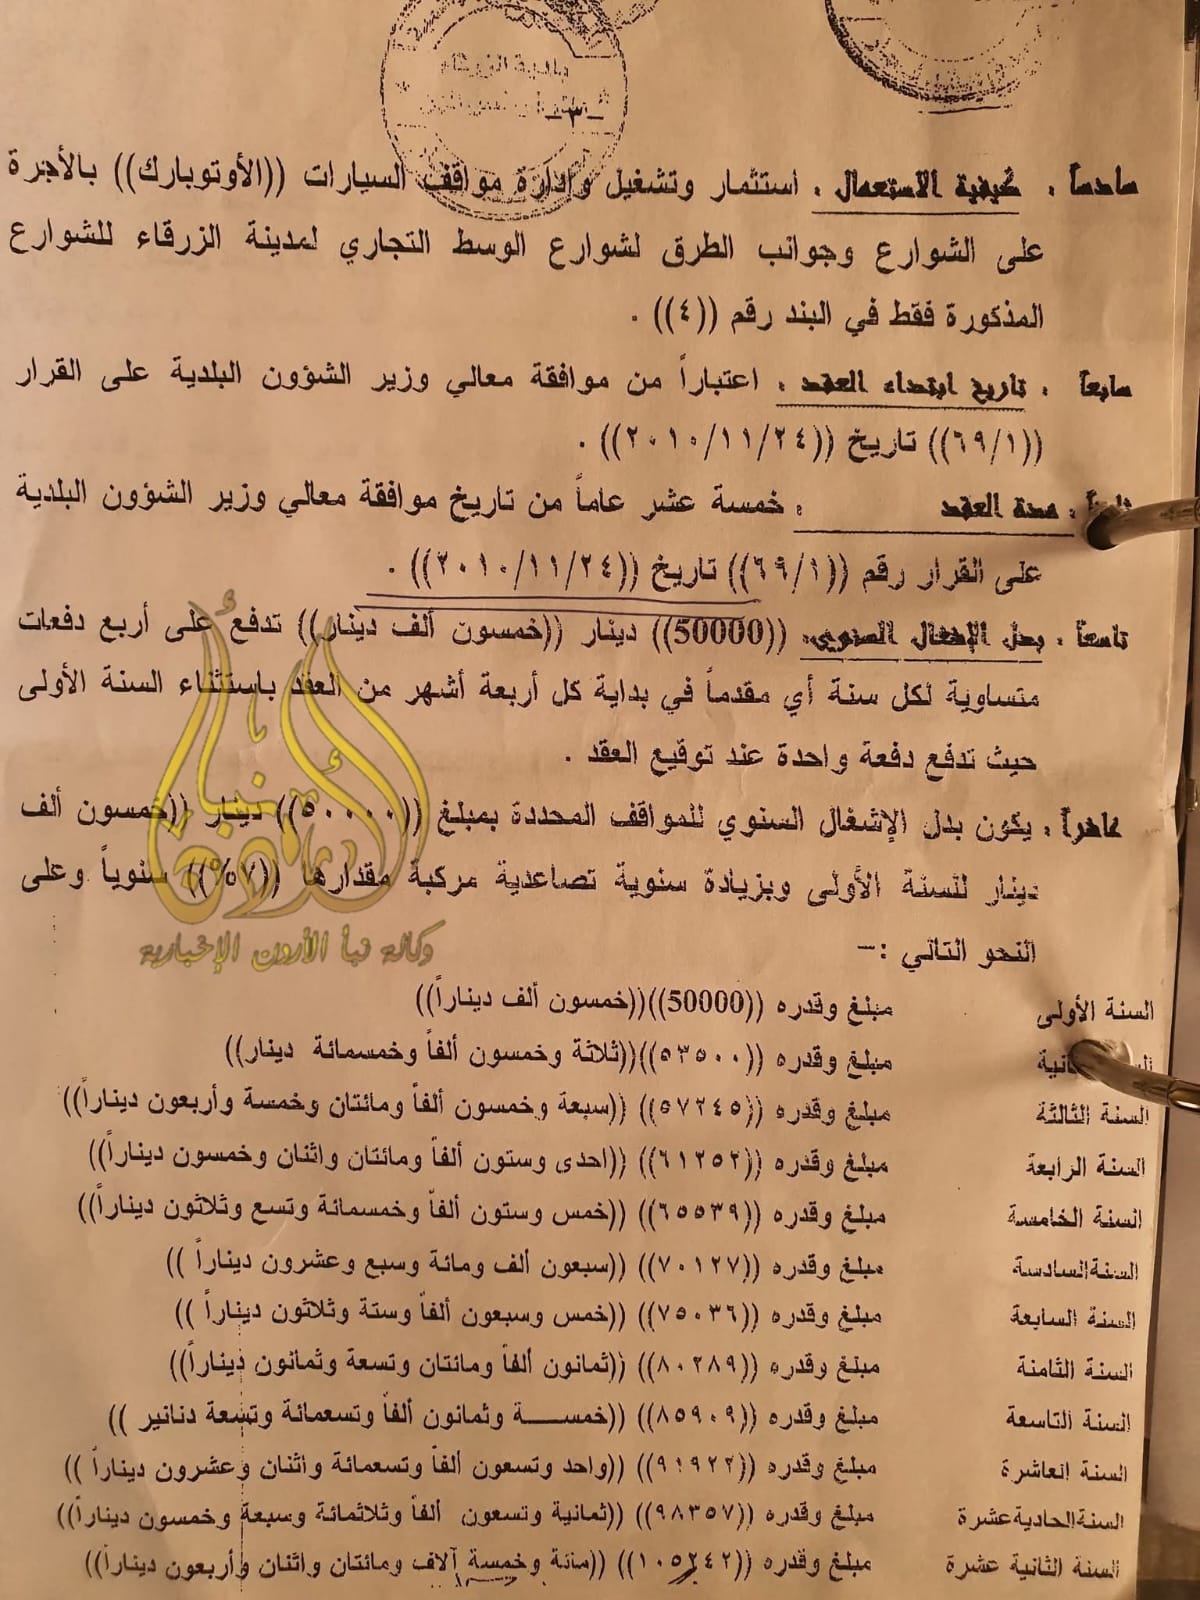 بلدية الزرقاء
سادساً : كيفية الاستعمال : استثمار وتشغيل وإدارة مواقف السيارات ((الأوتوبارك)) بالأجرة
على الشوارع وجوانب الطرق لشوارع الوسط التجاري لمدينة الزرقاء للشوارع
المذكورة فقط في البند رقم ((٤)) .
سابعاً : تاريخ ابتداء العقد : اعتباراً من موافقة معالي وزير الشؤون البلدية على القرار
((٦٩/١)) تاريخ ((٢٠١٠/١١/٢٤)) .
ثامناً : مدة العقد : خمسة عشر عاماً من تاريخ موافقة معالي وزير الشؤون البلدية
على القرار رقم ((٦٩/١)) تاريخ ((٢٠١٠/١١/٢٤)) .
تاسعاً : بدل الإشغال السنوي: ((50000)) دينار ((خمسون ألف دينار)) تدفع على أربع دفعات
متساوية لكل سنة أي مقدماً في بداية كل أربعة أشهر من العقد باستثناء السنة الأولى
حيث تدفع دفعة واحدة عند توقيع العقد .
عاشراً : يكون بدل الإشغال السنوي للمواقف المحددة بمبلغ ((٥٠٠٠٠)) دينار ((خمسون ألف
دينار للسنة الأولى وبزيادة سنوية تصاعدية مركبة مقدارها ((٧%)) سنوياً وعلى
النحو التالي :–
وكالة نبأ الأردن الإخبارية
السنة الأولى مبلغ وقدره ((50000))((خمسون ألف ديناراً))
السنة الثانية مبلغ وقدره ((٥٣٥٠٠))((ثلاثة وخمسون ألفاً وخمسمائة دينار))
السنة الثالثة مبلغ وقدره ((٥٧٢٤٥)) ((سبعة وخمسون ألفاً ومائتان وخمسة وأربعون ديناراً))
السنة الرابعة مبلغ وقدره ((٦١٢٥٢)) ((احدى وستون ألفاً ومائتان واثنان وخمسون ديناراً))
السنة الخامسة مبلغ وقدره ((٦٥٥٣٩)) ((خمس وستون ألفاً وخمسمائة وتسع وثلاثون ديناراً))
السنة السادسة مبلغ وقدره ((٧٠١٢٧)) ((سبعون ألف ومائة وسبع وعشرون ديناراً ))
السنة السابعة مبلغ وقدره ((٧٥٠٣٦)) ((خمس وسبعون ألفاً وستة وثلاثون ديناراً ))
السنة الثامنة مبلغ وقدره ((٨٠٢٨٩)) ((ثمانون ألفاً ومائتان وتسعة وثمانون ديناراً))
السنة التاسعة مبلغ وقدره ((٨٥٩٠٩)) ((خمســـة وثمانون ألفاً وتسعمائة وتسعة دنانير ))
السنة العاشرة مبلغ وقدره ((٩١٩٢٢)) ((واحد وتسعون ألفاً وتسعمائة واثنان وعشرون ديناراً ))
السنة الحادية عشرة مبلغ وقدره ((٩٨٣٥٧)) ((ثمانية وتسعون ألفاً وثلاثمائة وسبعة وخمسون ديناراً))
السنة الثانية عشرة مبلغ وقدره ((١٠٥٢٤٢)) ((مائة وخمسة آلاف ومائتان واثنان وأربعون ديناراً))